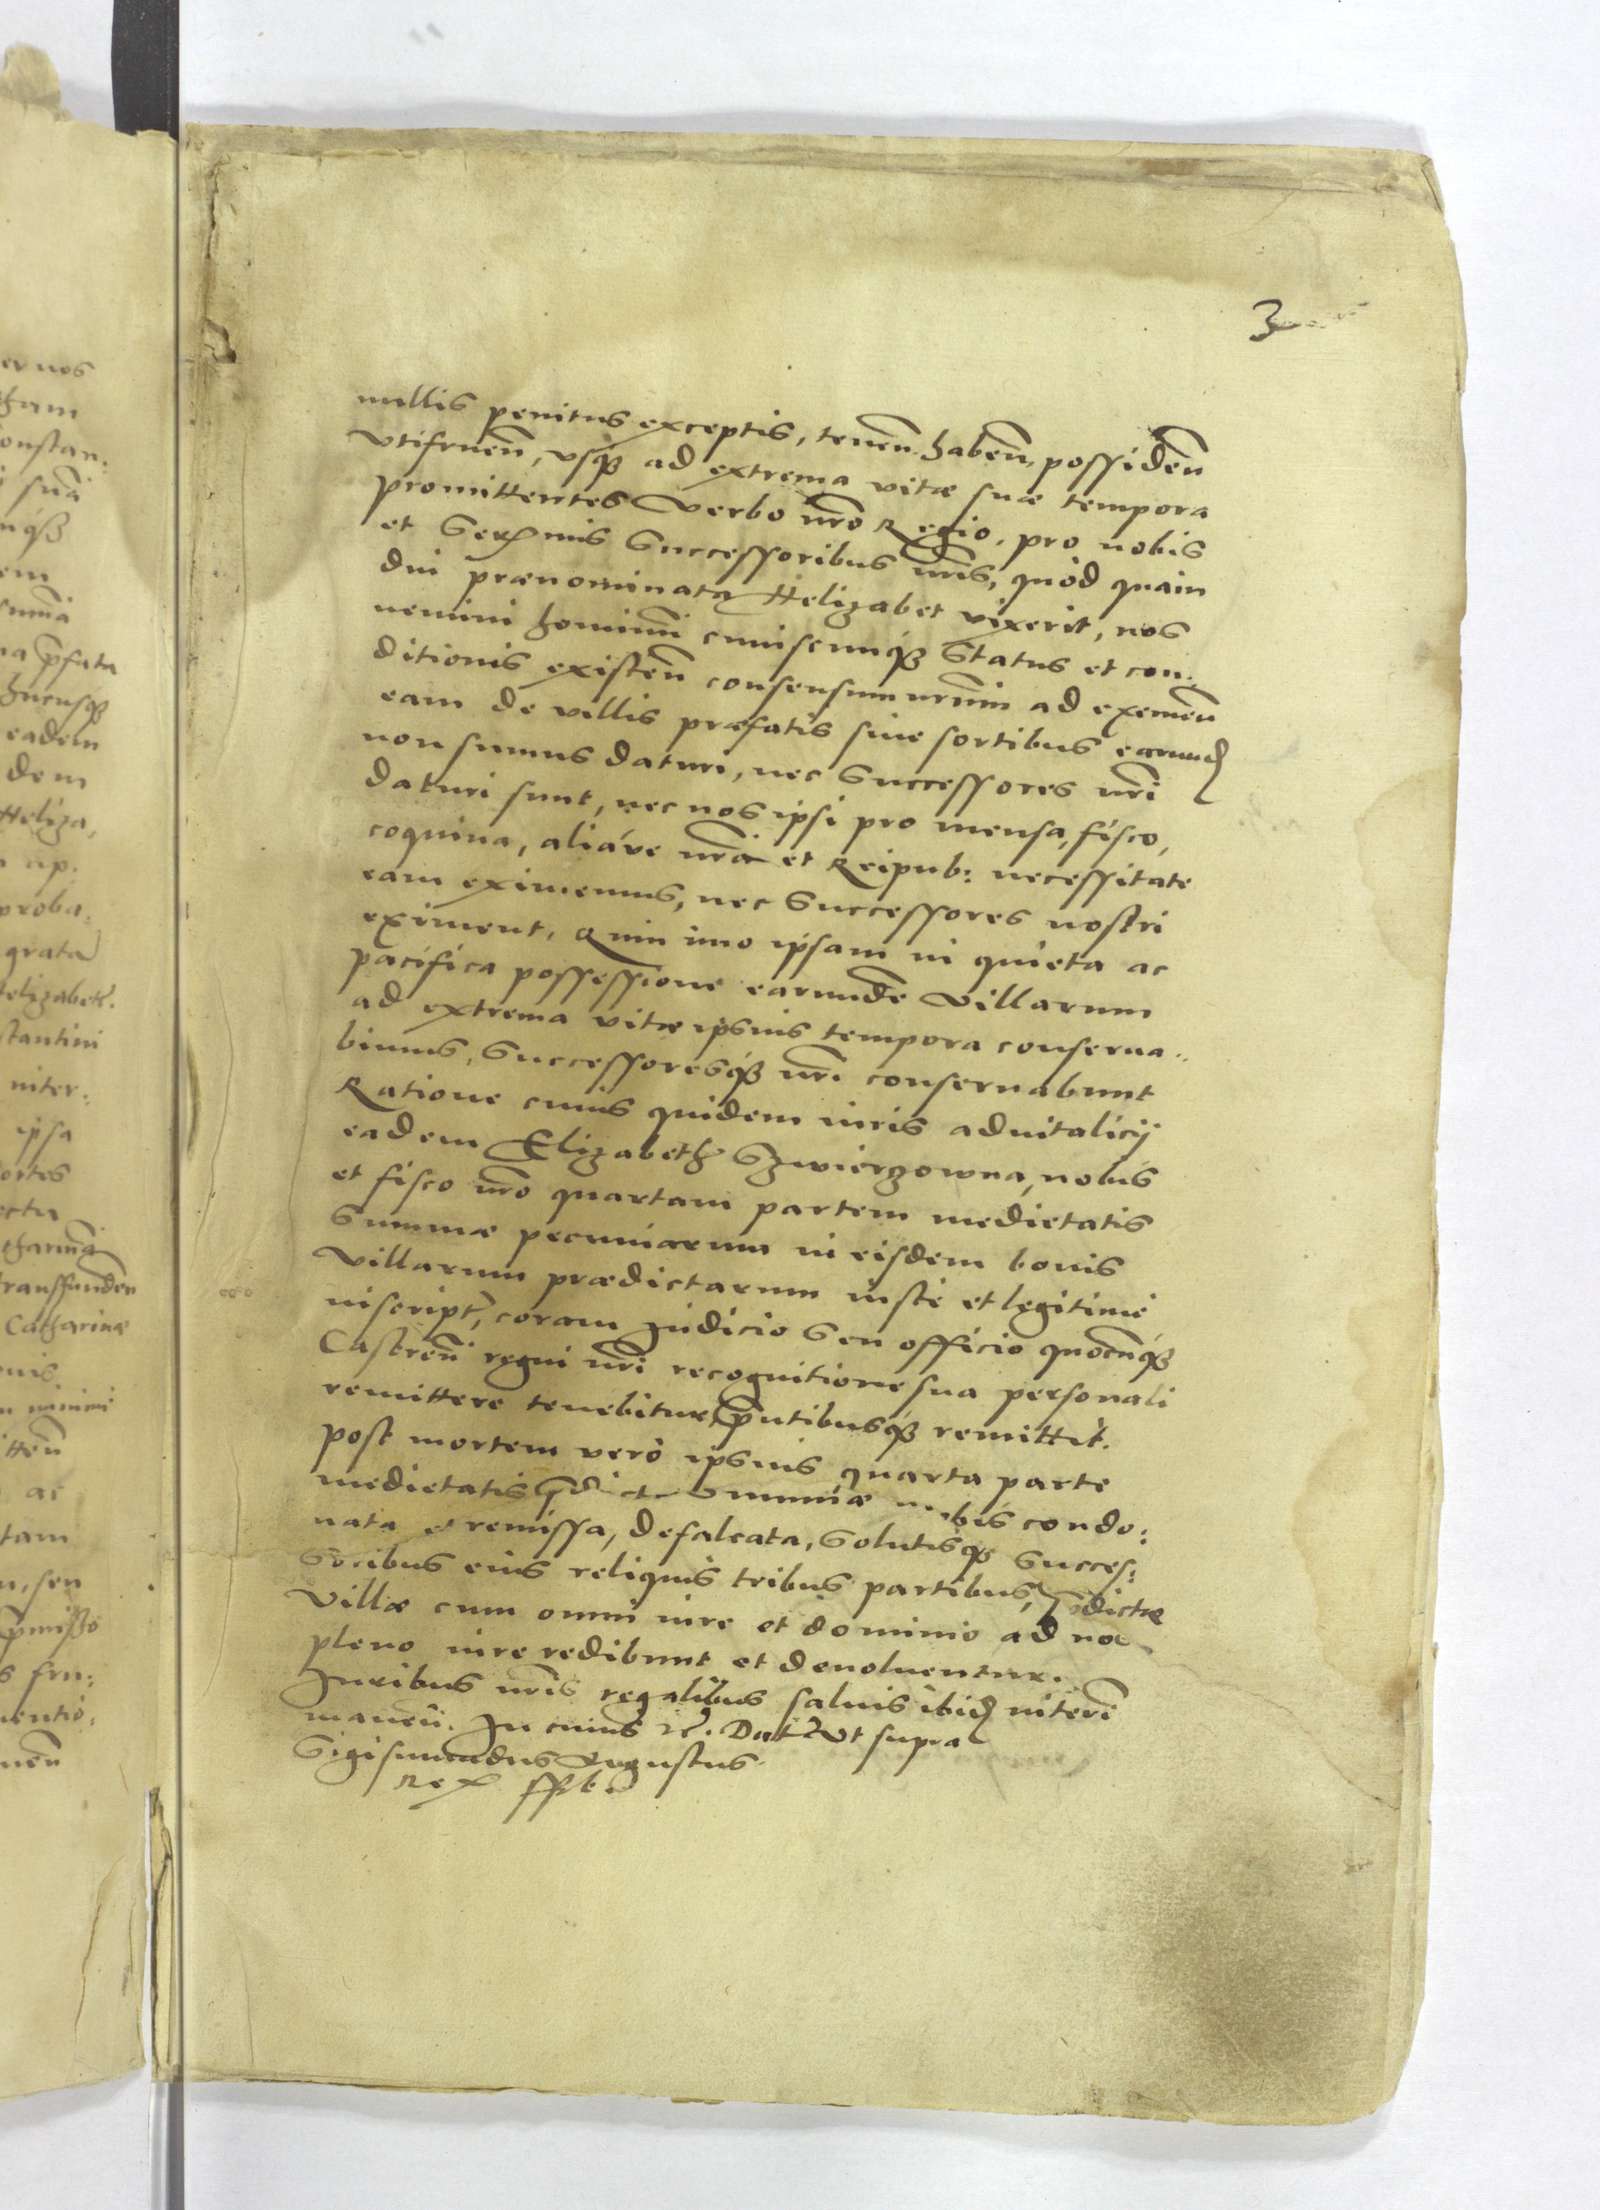 3
nullis penitus exceptis, tenen̄. haben̄, possiden̄
vtifruen̄, vsqȝ ad extrema vitæ suæ tempora
promittentes Verbo nr̄o Regio, pro nobis
et Serꝫmis Successoribus nr̄is, quòd quàm
diu prænominata Helizabet vixerit, nos
nemini hominū cuiuscunqȝ Status et con:
ditionis existen̄ consensum nr̄um ad eximen̄
eam de villis præfatis siue sortibus earund
non sumus daturi, nec Successores nr̄i
daturi sunt, nec nos ipsi pro mensa, fisco,
coquina, aliáve nr̄a et Reipub: necessitate
eam eximemus, nec Successores nostri
eximent, Quin imo ipsam in quieta ac
pacifica possessione earundē villarum
ad extrema vitæ ipsius tempora conserua..
bimus, Successoresqȝ nr̄i conseruabunt
Ratione cuius quidem iuris aduitalicij
eadem Elizabeth Szwierzowna, nobis
et fisco nr̄o quartam partem medietatis
Summæ pecuniarum in eisdem bonis
Villarum prædictarum iustè et legitimè
inscript, coram Iudicio Seu officio quocūqȝ
Castren̄ regni nr̄i recognitione sua personali
remittere tenebitur, p̄ntibusqȝ remittit.
post mortem verò ipsius quarta parte
medietatis p̄dict Summæ nobis condo:
nata et remissa, defalcata, Solutisqȝ Succes:
Soribus eius reliquis tribus partibus, p̄dictæ
Villæ cum omni iure et dominio ad nos
pleno iure redibunt et deuoluentur.
Iuribus nr̄is regalibus saluis ibid interī
manen̄. In cuius rē. Dat Vt supra
Sigismundus Augustus
Rex sspt.